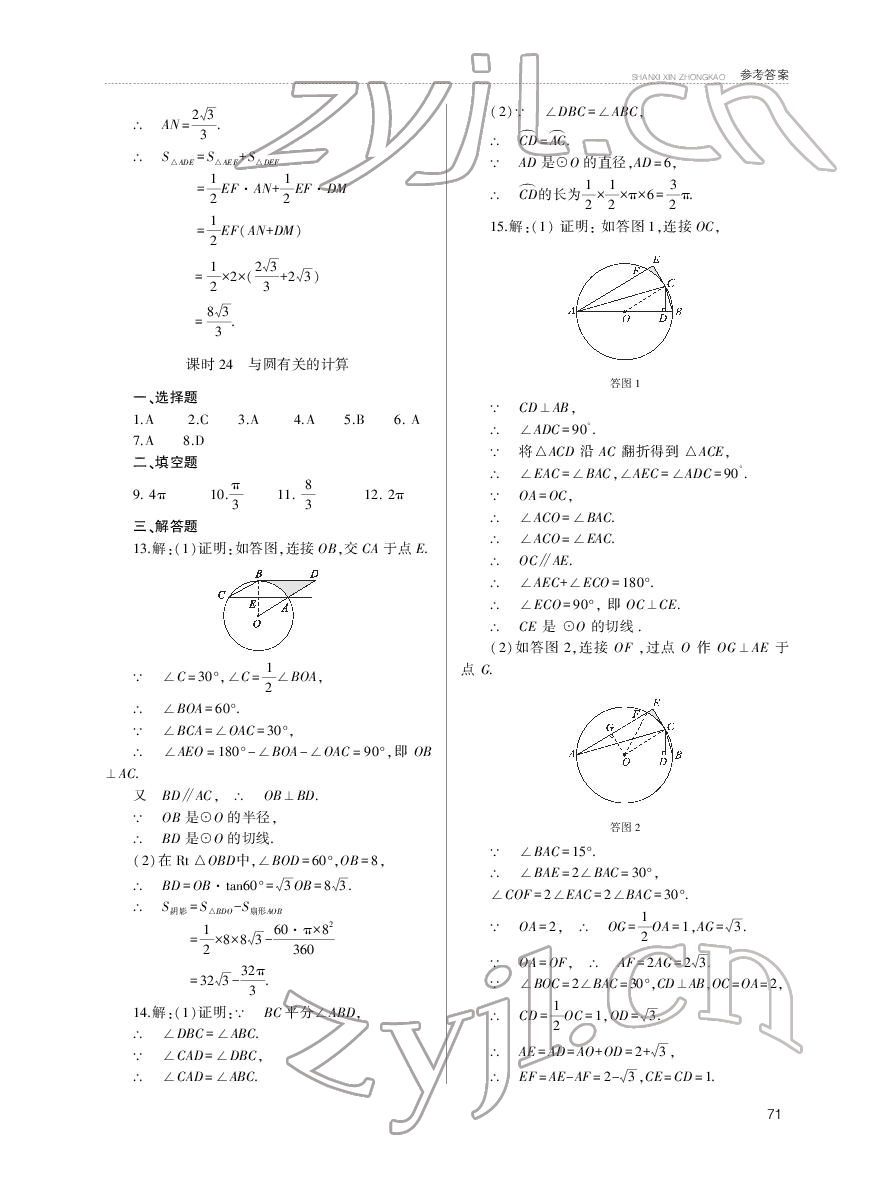 SHANXI XIN ZHONGKAO 参考答案
∴ AN=2√3/3.
∴ S△ADE=S△AEF+S△DEF
=1/2 EF·AN+1/2 EF·DM
=1/2 EF(AN+DM)
=1/2×2×(2√3/3+2√3)
=8√3/3.
课时 24 与圆有关的计算
一、选择题
1.A 2.C 3.A 4.A 5.B 6. A
7.A 8.D
二、填空题
9. 4π 10. π/3 11. 8/3 12. 2π
三、解答题
13.解:(1)证明:如答图,连接 OB,交 CA 于点 E.
B D
C E A
O
∵ ∠C=30°,∠C=1/2∠BOA,
∴ ∠BOA=60°.
∵ ∠BCA=∠OAC=30°,
∴ ∠AEO=180°-∠BOA-∠OAC=90°,即 OB
⊥AC.
又 BD∥AC, ∴ OB⊥BD.
∵ OB 是⊙O 的半径,
∴ BD 是⊙O 的切线.
(2)在 Rt △OBD中,∠BOD=60°,OB=8,
∴ BD=OB·tan60°=√3OB=8√3.
∴ S阴影=S△BDO-S扇形AOB
=1/2×8×8√3-60·π×8²/360
=32√3-32π/3.
14.解:(1)证明:∵ BC 平分∠ABD,
∴ ∠DBC=∠ABC.
∵ ∠CAD=∠DBC,
∴ ∠CAD=∠ABC.
(2)∵ ∠DBC=∠ABC,
∴ CD⌒=AC⌒.
∵ AD 是⊙O 的直径,AD=6,
∴ CD⌒的长为1/2×1/2×π×6=3/2π.
15.解:(1) 证明: 如答图 1,连接 OC,
E
F
C
A O D B
答图 1
∵ CD⊥AB,
∴ ∠ADC=90°.
∵ 将△ACD 沿 AC 翻折得到 △ACE,
∴ ∠EAC=∠BAC,∠AEC=∠ADC=90°.
∵ OA=OC,
∴ ∠ACO=∠BAC.
∴ ∠ACO=∠EAC.
∴ OC∥AE.
∴ ∠AEC+∠ECO=180°.
∴ ∠ECO=90°, 即 OC⊥CE.
∴ CE 是 ⊙O 的切线 .
(2)如答图 2,连接 OF ,过点 O 作 OG⊥AE 于
点 G.
E
F
G C
A O D B
答图 2
∵ ∠BAC=15°.
∴ ∠BAE=2∠BAC=30°,
∠COF=2∠EAC=2∠BAC=30°.
∵ OA=2, ∴ OG=1/2OA=1,AG=√3.
∵ OA=OF, ∴ AF=2AG=2√3.
∵ ∠BOC=2∠BAC=30°,CD⊥AB,OC=OA=2,
∴ CD=1/2OC=1,OD=√3.
∴ AE=AD=AO+OD=2+√3,
∴ EF=AE-AF=2-√3,CE=CD=1.
71
zyjl.cn
zyjl.cn